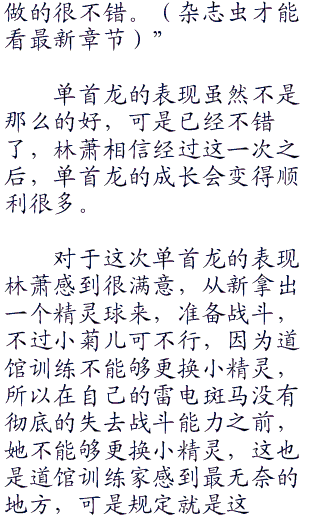 做的很不错。（杂志虫才能
看最新章节）”
单首龙的表现虽然不是
那么的好，可是已经不错
了，林萧相信经过这一次之
后，单首龙的成长会变得顺
利很多。
对于这次单首龙的表现
林萧感到很满意，从新拿出
一个精灵球来，准备战斗，
不过小菊儿可不行，因为道
馆训练不能够更换小精灵，
所以在自己的雷电斑马没有
彻底的失去战斗能力之前，
她不能够更换小精灵，这也
是道馆训练家感到最无奈的
地方，可是规定就是这